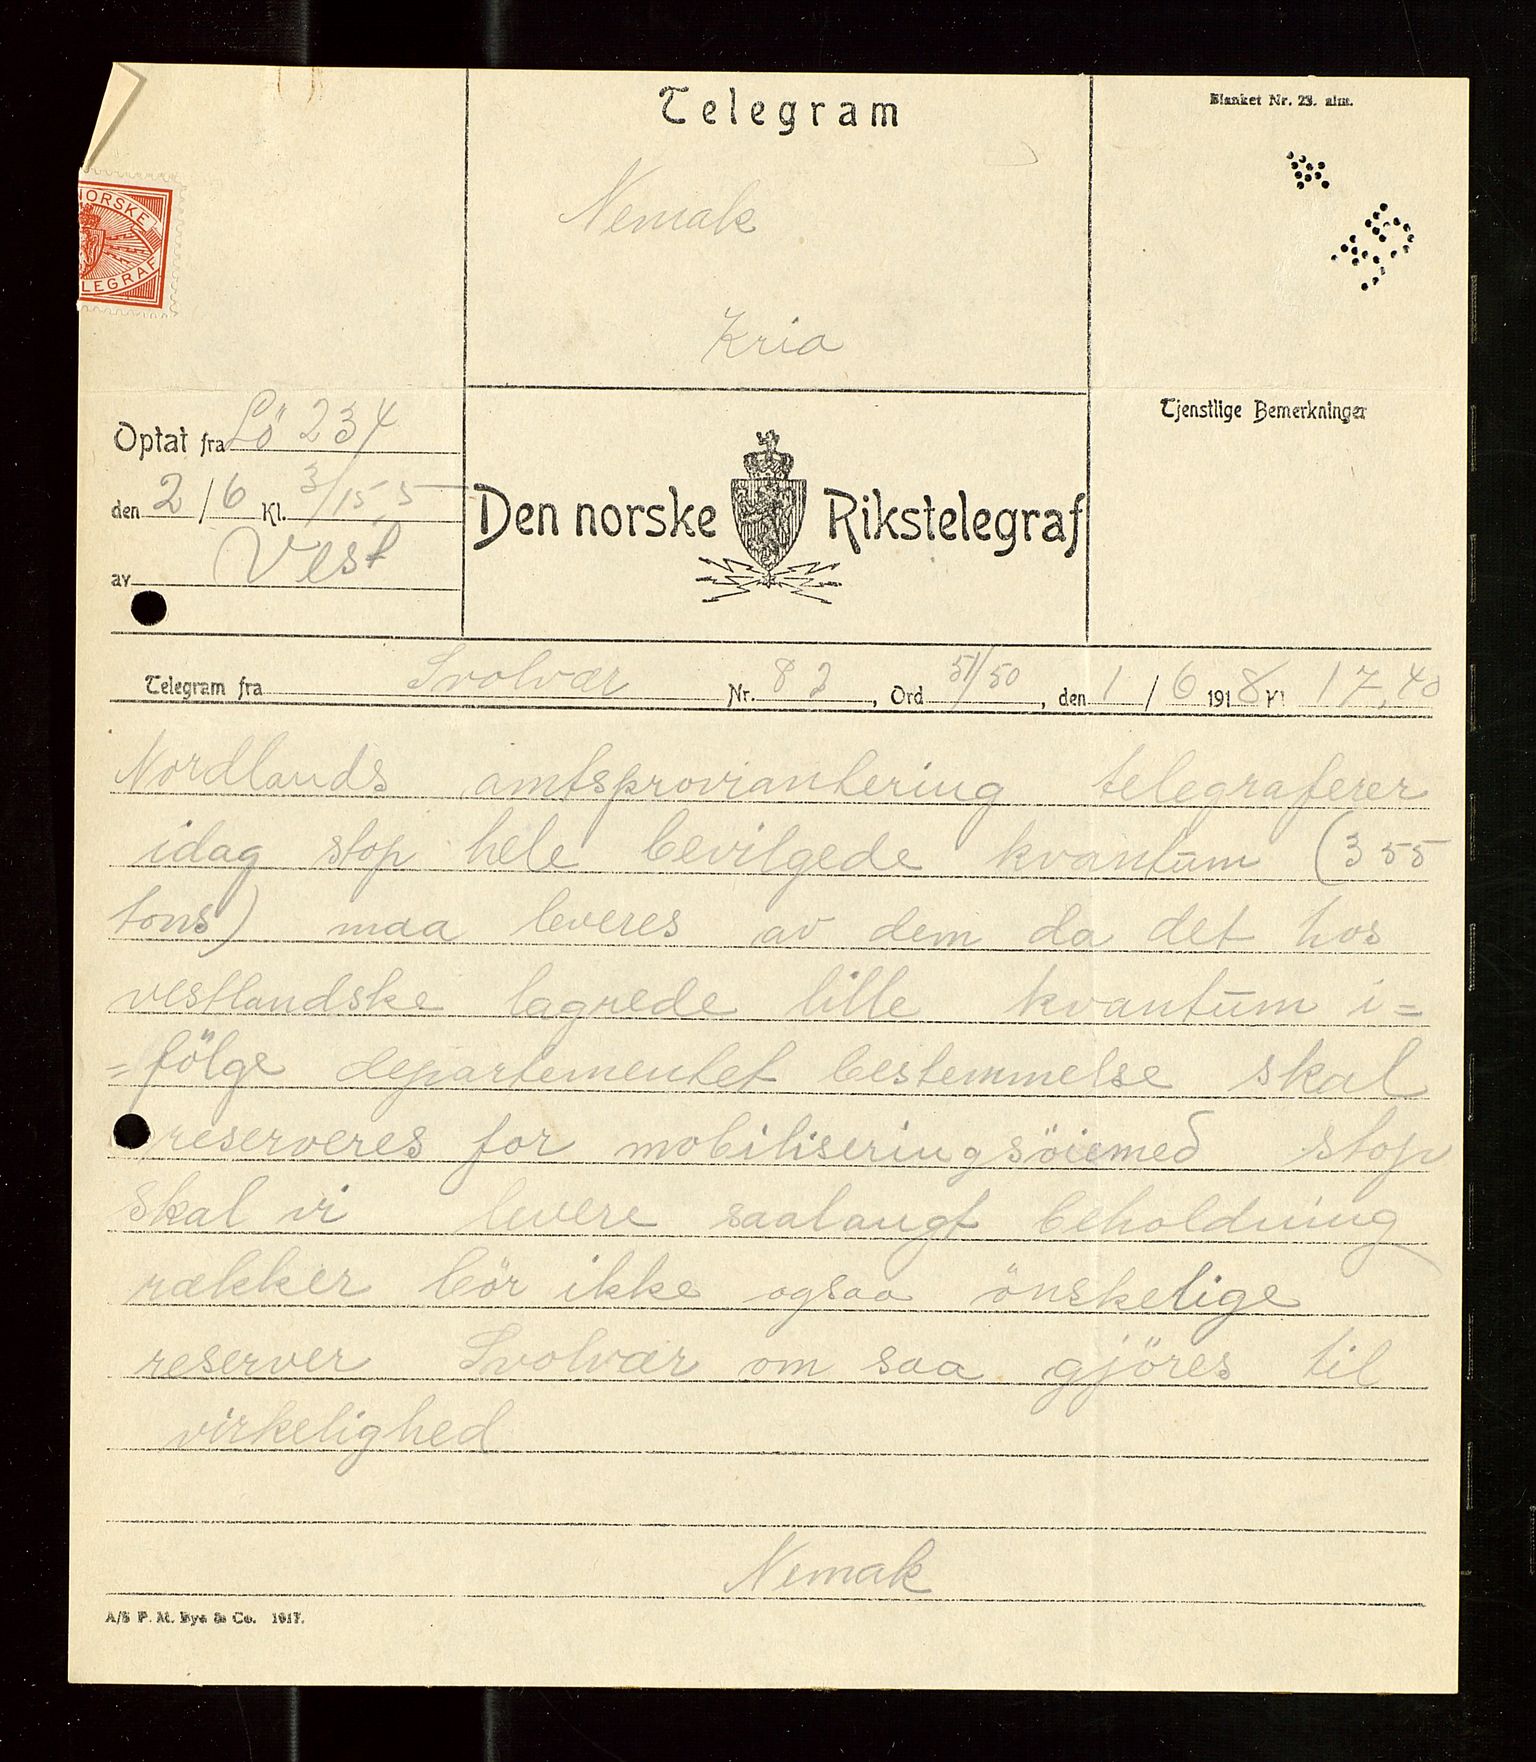 Telegram
Blanket Nr. 23. alm.
NORSKE
LEGRAF
Nemak
Kria
Optat fra Lö 234
den 2/6 Kl. 3/15,5
av Vest
Den norske Rikstelegraf
Tjenstlige Bemerkninger
Telegram fra Svolvær Nr. 82, Ord 51/50, den 1/6 1918 Kl 17,40
Nordlands amtsproviantering telegraferer
idag stop hele bevilgede kvantum (355
tons) maa leveres av dem da det hos
vestlandske lagrede lille kvantum i=
=fölge departementet bestemmelse skal
reserveres for mobiliseringsöiemed stop
skal vi levere saalangt beholdning
rækker bör ikke ogsaa önskelige
reserver Svolvær om saa gjöres til
virkelighed
Nemak
A/S P. M. Bye & Co. 1917.